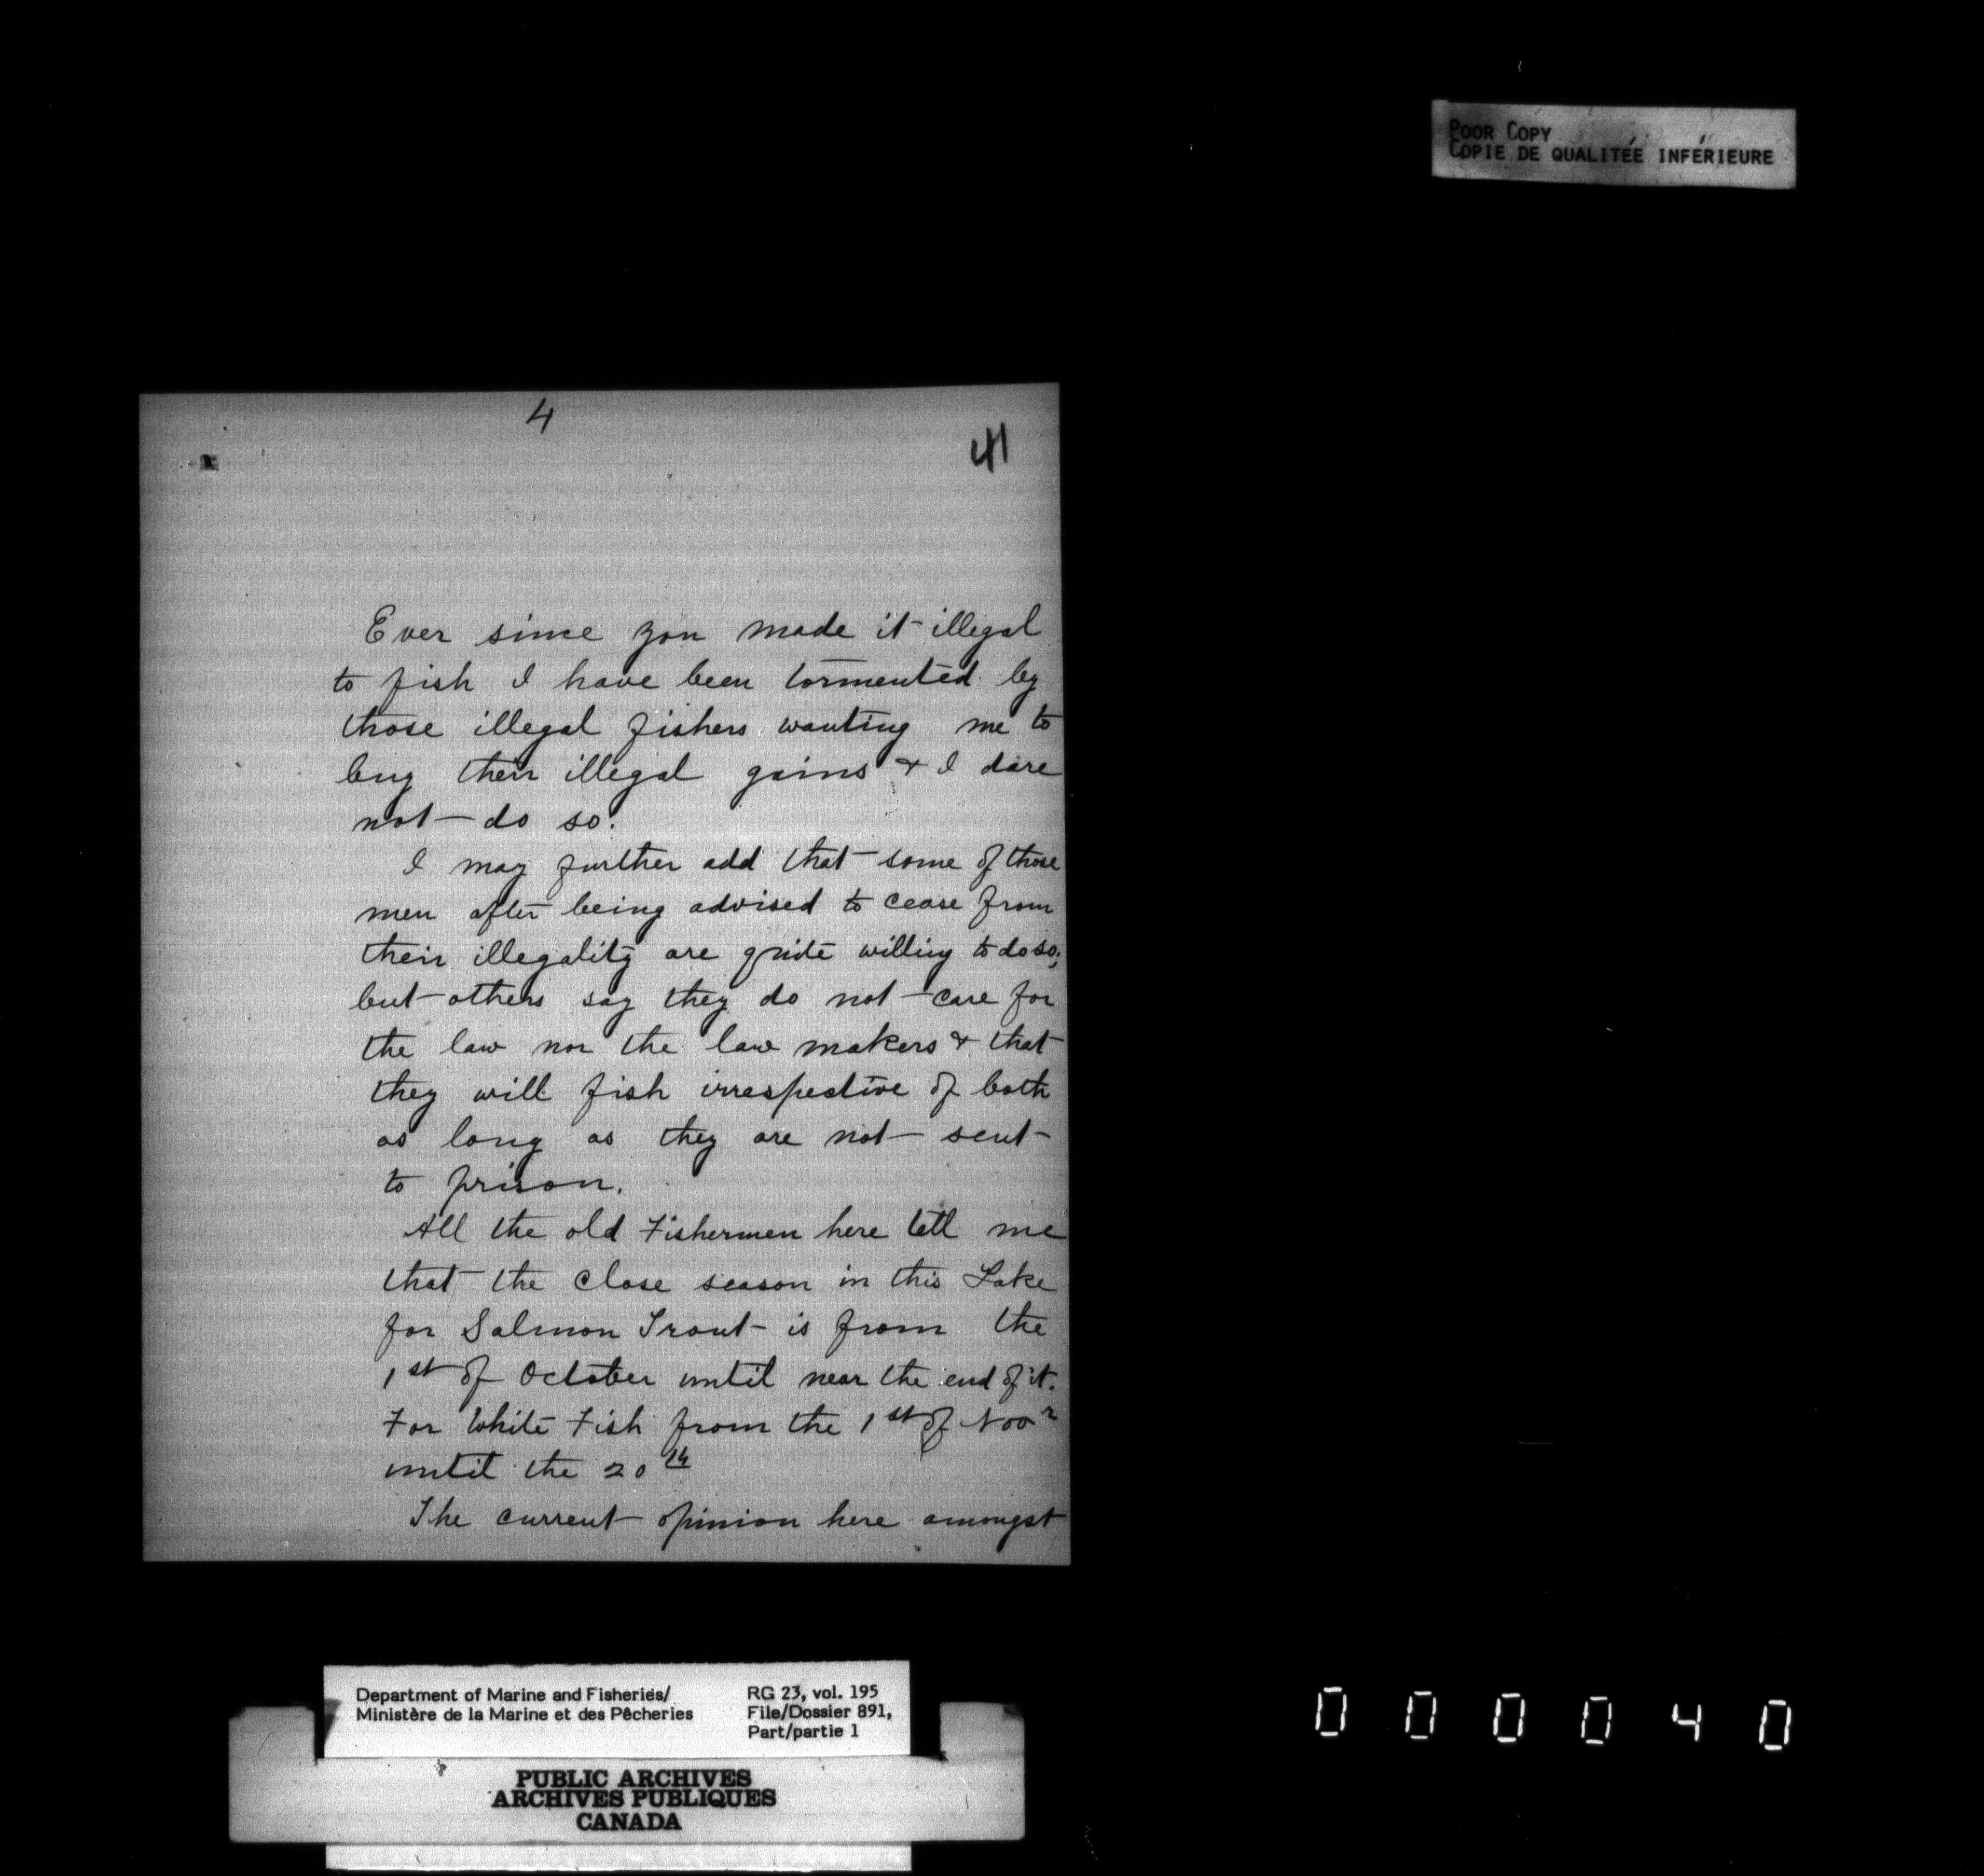 POOR COPY
COPIE DE QUALITÉE INFÉRIEURE
4
41
Ever since you made it illegal
to fish I have been tormented by
those illegal fishers wanting me to
buy their illegal gains & I dare
not do so.
I may further add that some of those
men after being advised to cease from
their illegality are quite willing to do so;
but others say they do not care for
the law nor the law makers & that
they will fish irrespective of both
as long as they are not sent
to prison.
All the old Fishermen here tell me
that the close season in this Lake
for Salmon Trout is from the
1st of October until near the end of it.
For White Fish from the 1st of Novr
until the 20th
The current opinion here amongst
Department of Marine and Fisheries/
Ministère de la Marine et des Pêcheries
RG 23, vol. 195
File/Dossier 891,
Part/partie 1
PUBLIC ARCHIVES
ARCHIVES PUBLIQUES
CANADA
000040